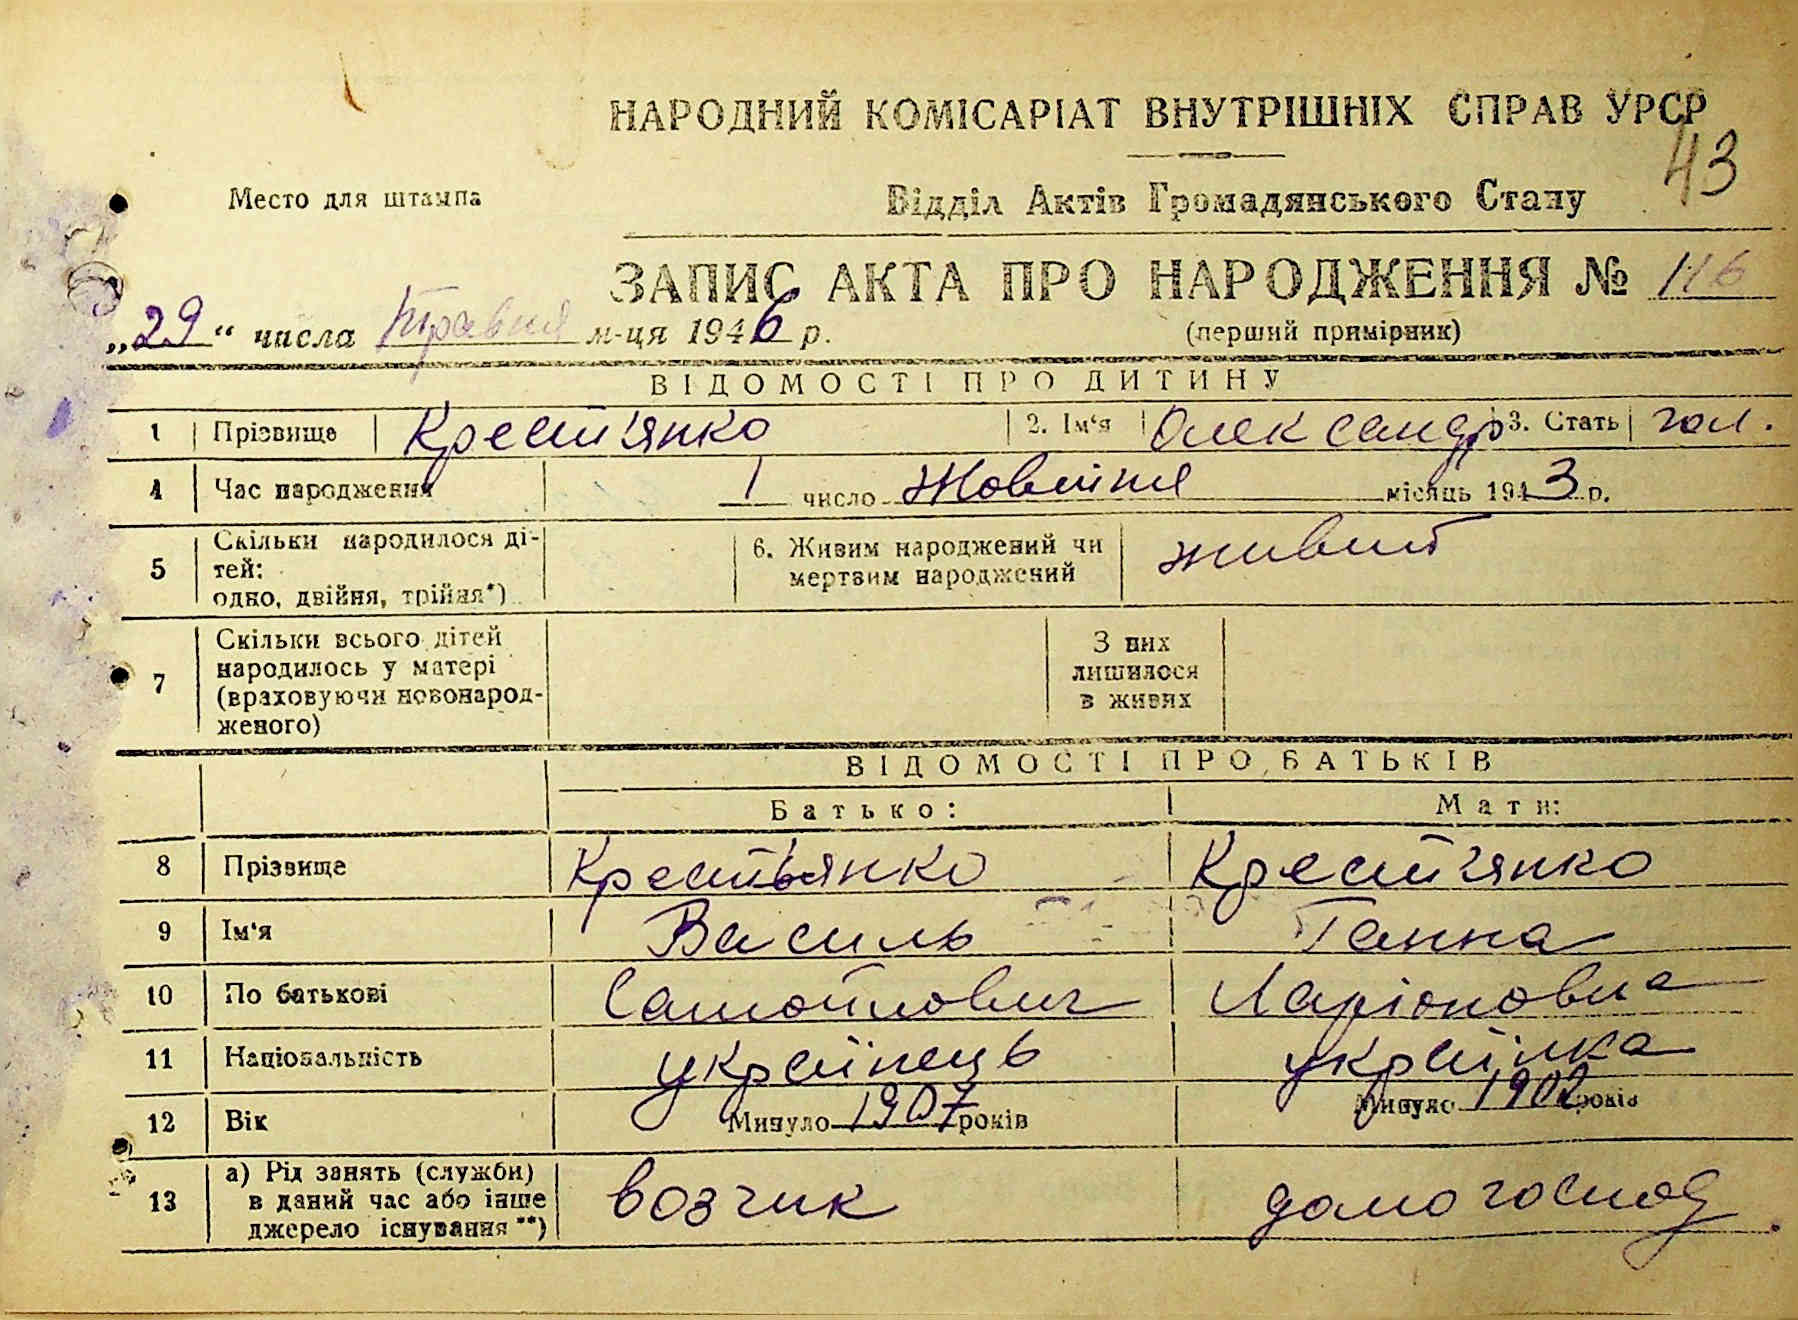 НАРОДНИЙ КОМІСАРІАТ ВНУТРІШНІХ СПРАВ УРСР
43
Место для штампа
Відділ Актів Громадянського Стану
ЗАПИС АКТА ПРО НАРОДЖЕННЯ № 116
„29“ числа Травня м-ця 1946 р.
(перший примірник)
ВІДОМОСТІ ПРО ДИТИНУ
1 Прізвище Крест'янко 2. Ім'я Олександр 3. Стать чол.
4 Час народження 1 число Жовтня місяць 1943 р.
5 Скільки народилося ді-
тей:
одно, двійня, трійня*)
6. Живим народжений чи
мертвим народжений
живий
7 Скільки всього дітей
народилось у матері
(враховуючи новонарод-
женого)
З них
лишилося
в живих
ВІДОМОСТІ ПРО БАТЬКІВ
Батько: Мати:
8 Прізвище Крестьянко Крест'янко
9 Ім'я Василь Ганна
10 По батькові Самойлович Ларіоновна
11 Національність українець українка
12 Вік Минуло 1907 років Минуло 1902 років
13 а) Рід занять (служби)
в даний час або інше
джерело існування **)
возчик домогоспод.